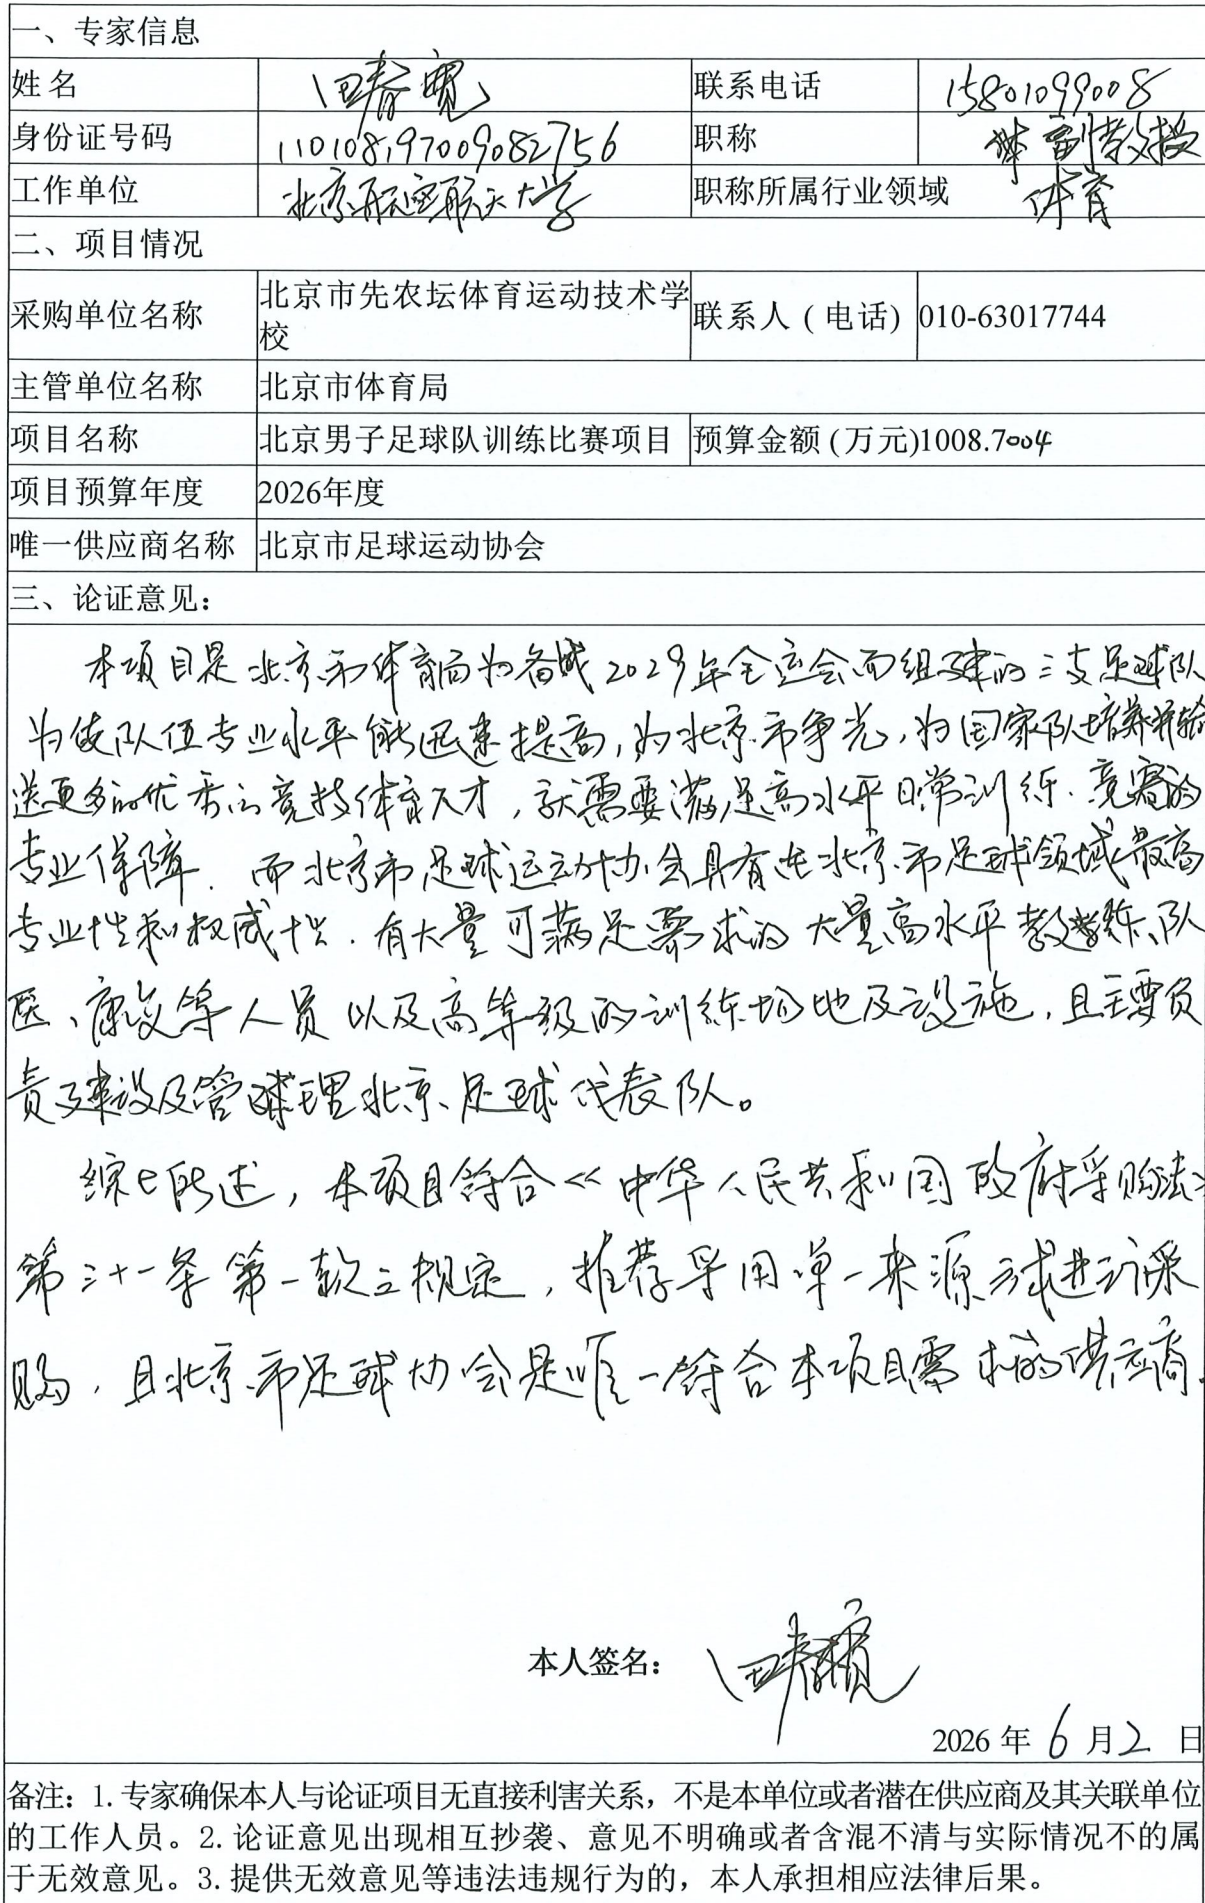 一、专家信息
姓名 田春宽 联系电话 15801099008
身份证号码 110108197009082756 职称 副教授
工作单位 北京航空航天大学 职称所属行业领域 体育
二、项目情况
采购单位名称 北京市先农坛体育运动技术学校 联系人(电话) 010-63017744
主管单位名称 北京市体育局
项目名称 北京男子足球队训练比赛项目 预算金额(万元)1008.7004
项目预算年度 2026年度
唯一供应商名称 北京市足球运动协会
三、论证意见：
本项目是北京市体育局为备战2029年全运会而组建的三支足球队
为使队伍专业水平能迅速提高,为北京市争光,为国家队培养并输
送更多的优秀的竞技体育人才,就需要满足高水平日常训练、竞赛的
专业保障.而北京市足球运动协会具有在北京市足球领域最高
专业性和权威性.有大量可满足要求的大量高水平教练、队
医、康复等人员以及高等级的训练场地及设施,且主要负
责建设及管理北京足球代表队。
综上所述,本项目符合《中华人民共和国政府采购法》
第三十一条第一款之规定,推荐采用单一来源方式进行采
购,且北京市足球协会是唯一符合本项目需求的供应商.
本人签名： 田春宽
2026年6月2日
备注：1.专家确保本人与论证项目无直接利害关系，不是本单位或者潜在供应商及其关联单位
的工作人员。2.论证意见出现相互抄袭、意见不明确或者含混不清与实际情况不的属
于无效意见。3.提供无效意见等违法违规行为的，本人承担相应法律后果。